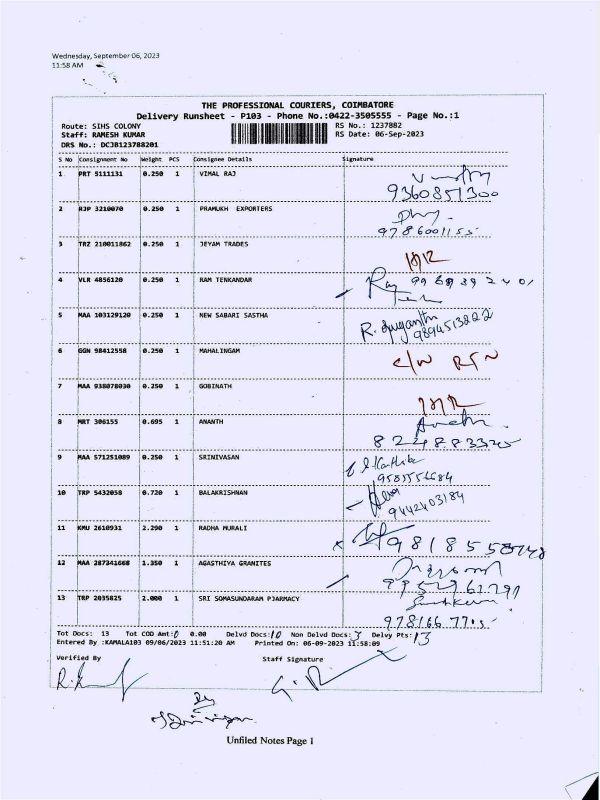 Wednesday, September 06, 2023
11:58 AM
THE PROFESSIONAL COURIERS, COIMBATORE
Delivery Runsheet - P103 - Phone No.:0422-3505555 - Page No.:1
Route: SIHS COLONY RS No.: 1237882
Staff: RAMESH KUMAR RS Date: 06-Sep-2023
DRS No.: DCJB123788201
S No Consignment No Weight PCS Consignee Details Signature
1 PRT 5111131 0.250 1 VIMAL RAJ
9360851300
2 RJP 3210070 0.250 1 PRAMUKH EXPORTERS
9786001155
3 TRZ 210011862 0.250 1 JEYAM TRADES
4 VLR 4856120 0.250 1 RAM TENKANDAR
5 MAA 103129120 0.250 1 NEW SABARI SASTHA
9894513822
6 GGN 98412558 0.250 1 MAHALINGAM C/W RTN
7 MAA 938078030 0.250 1 GOBINATH
8 MRT 306155 0.695 1 ANANTH
9 MAA 571251089 0.250 1 SRINIVASAN
10 TRP 5432058 0.720 1 BALAKRISHNAN
9442403184
11 KMU 2610931 2.290 1 RADHA MURALI
12 MAA 287341668 1.350 1 AGASTHIYA GRANITES
13 TRP 2035825 2.000 1 SRI SOMASUNDARAM PJARMACY
Tot Docs: 13 Tot COD Amt: 0 0.00 Delvd Docs: 10 Non Delvd Docs: 3 Delvy Pts: 13
Entered By :KAMALA103 09/06/2023 11:51:20 AM Printed On: 06-09-2023 11:58:09
Verified By Staff Signature
Unfiled Notes Page 1